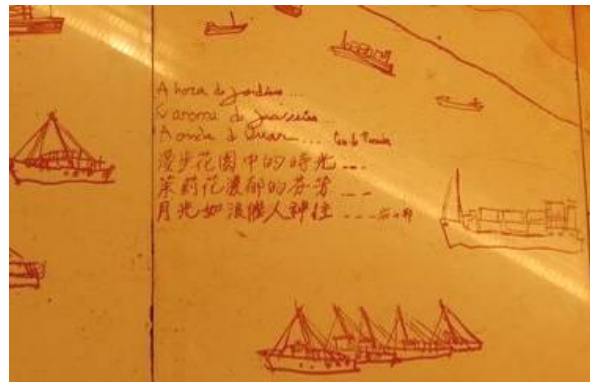 A hora do jardim...
O aroma de jasmim...
A onda do luar...
漫步花園中的時光---
茉莉花濃郁的芬芳---
月光如浪催人神往---